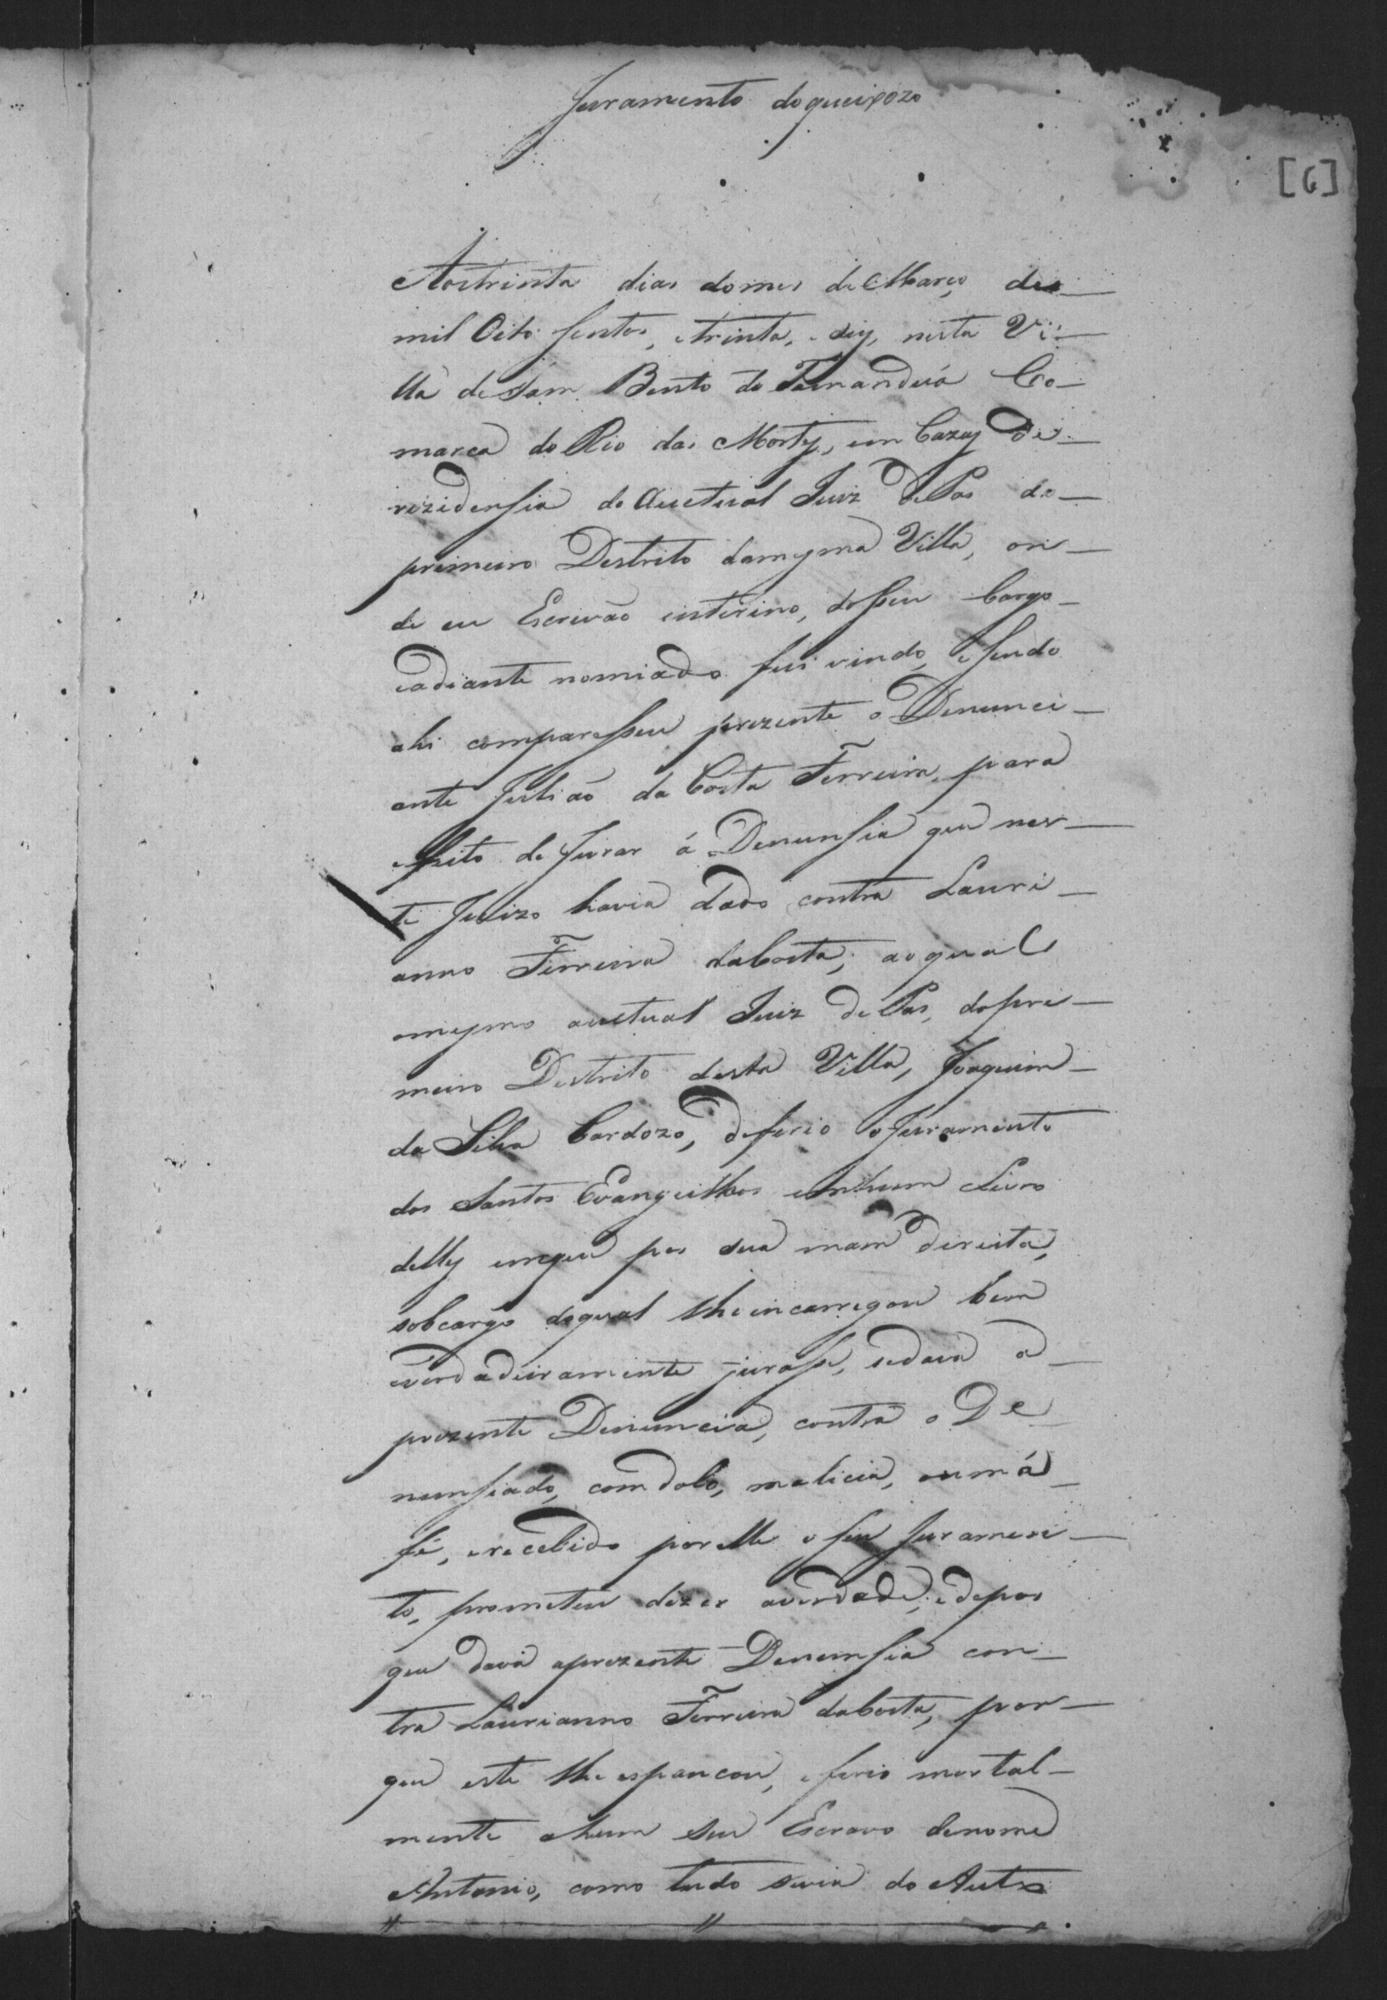 Juramento do queixozo
[6]
Aos trinta dias do mes de Março de
mil Oito sentos, etrinta, eseis, nesta Vi-
lla de Sam Bento do Tamanduá Co-
marca do Rio das Mortes, em Cazas de
rezidensia do Auctual Juiz de Pas do
primeiro Destrito damesma Villa, on-
de eu Escrivão interino, doseu Cargo
eadiante nomiado fui vindo, e sendo
ahi comparesseu prezente o Denunci-
ante Julião da Costa Ferreira, para
effeito de Jurar á Denunsia que nes-
te Juizo havia dado contra Lauri-
anno Ferreira daCosta; aoqual
omesmo auctual Juiz de Pas, dopri-
meiro Destrito desta Villa, Joaquim
da Silva Cardozo, deferio oJuramento
dos Santos Evangelhos emhum Livro
delles emque pos sua mam direita,
sobcargo doqual lheincarregou bem
everdadeiramente jurasse, sedava a
prezente Denuncia, contra o De
nunsiado, com dolo, malicia, ou má
fé, erecebido porelle o seu Juramen-
to, prometeu dizer averdade, edepos
que dava aprezente Denunsia con-
tra Laurianno Ferreira daCosta, por-
que este lhe espancou, eferio mortal-
mente ahum seu Escravo denome
Antonio, como tudo severia do Auto